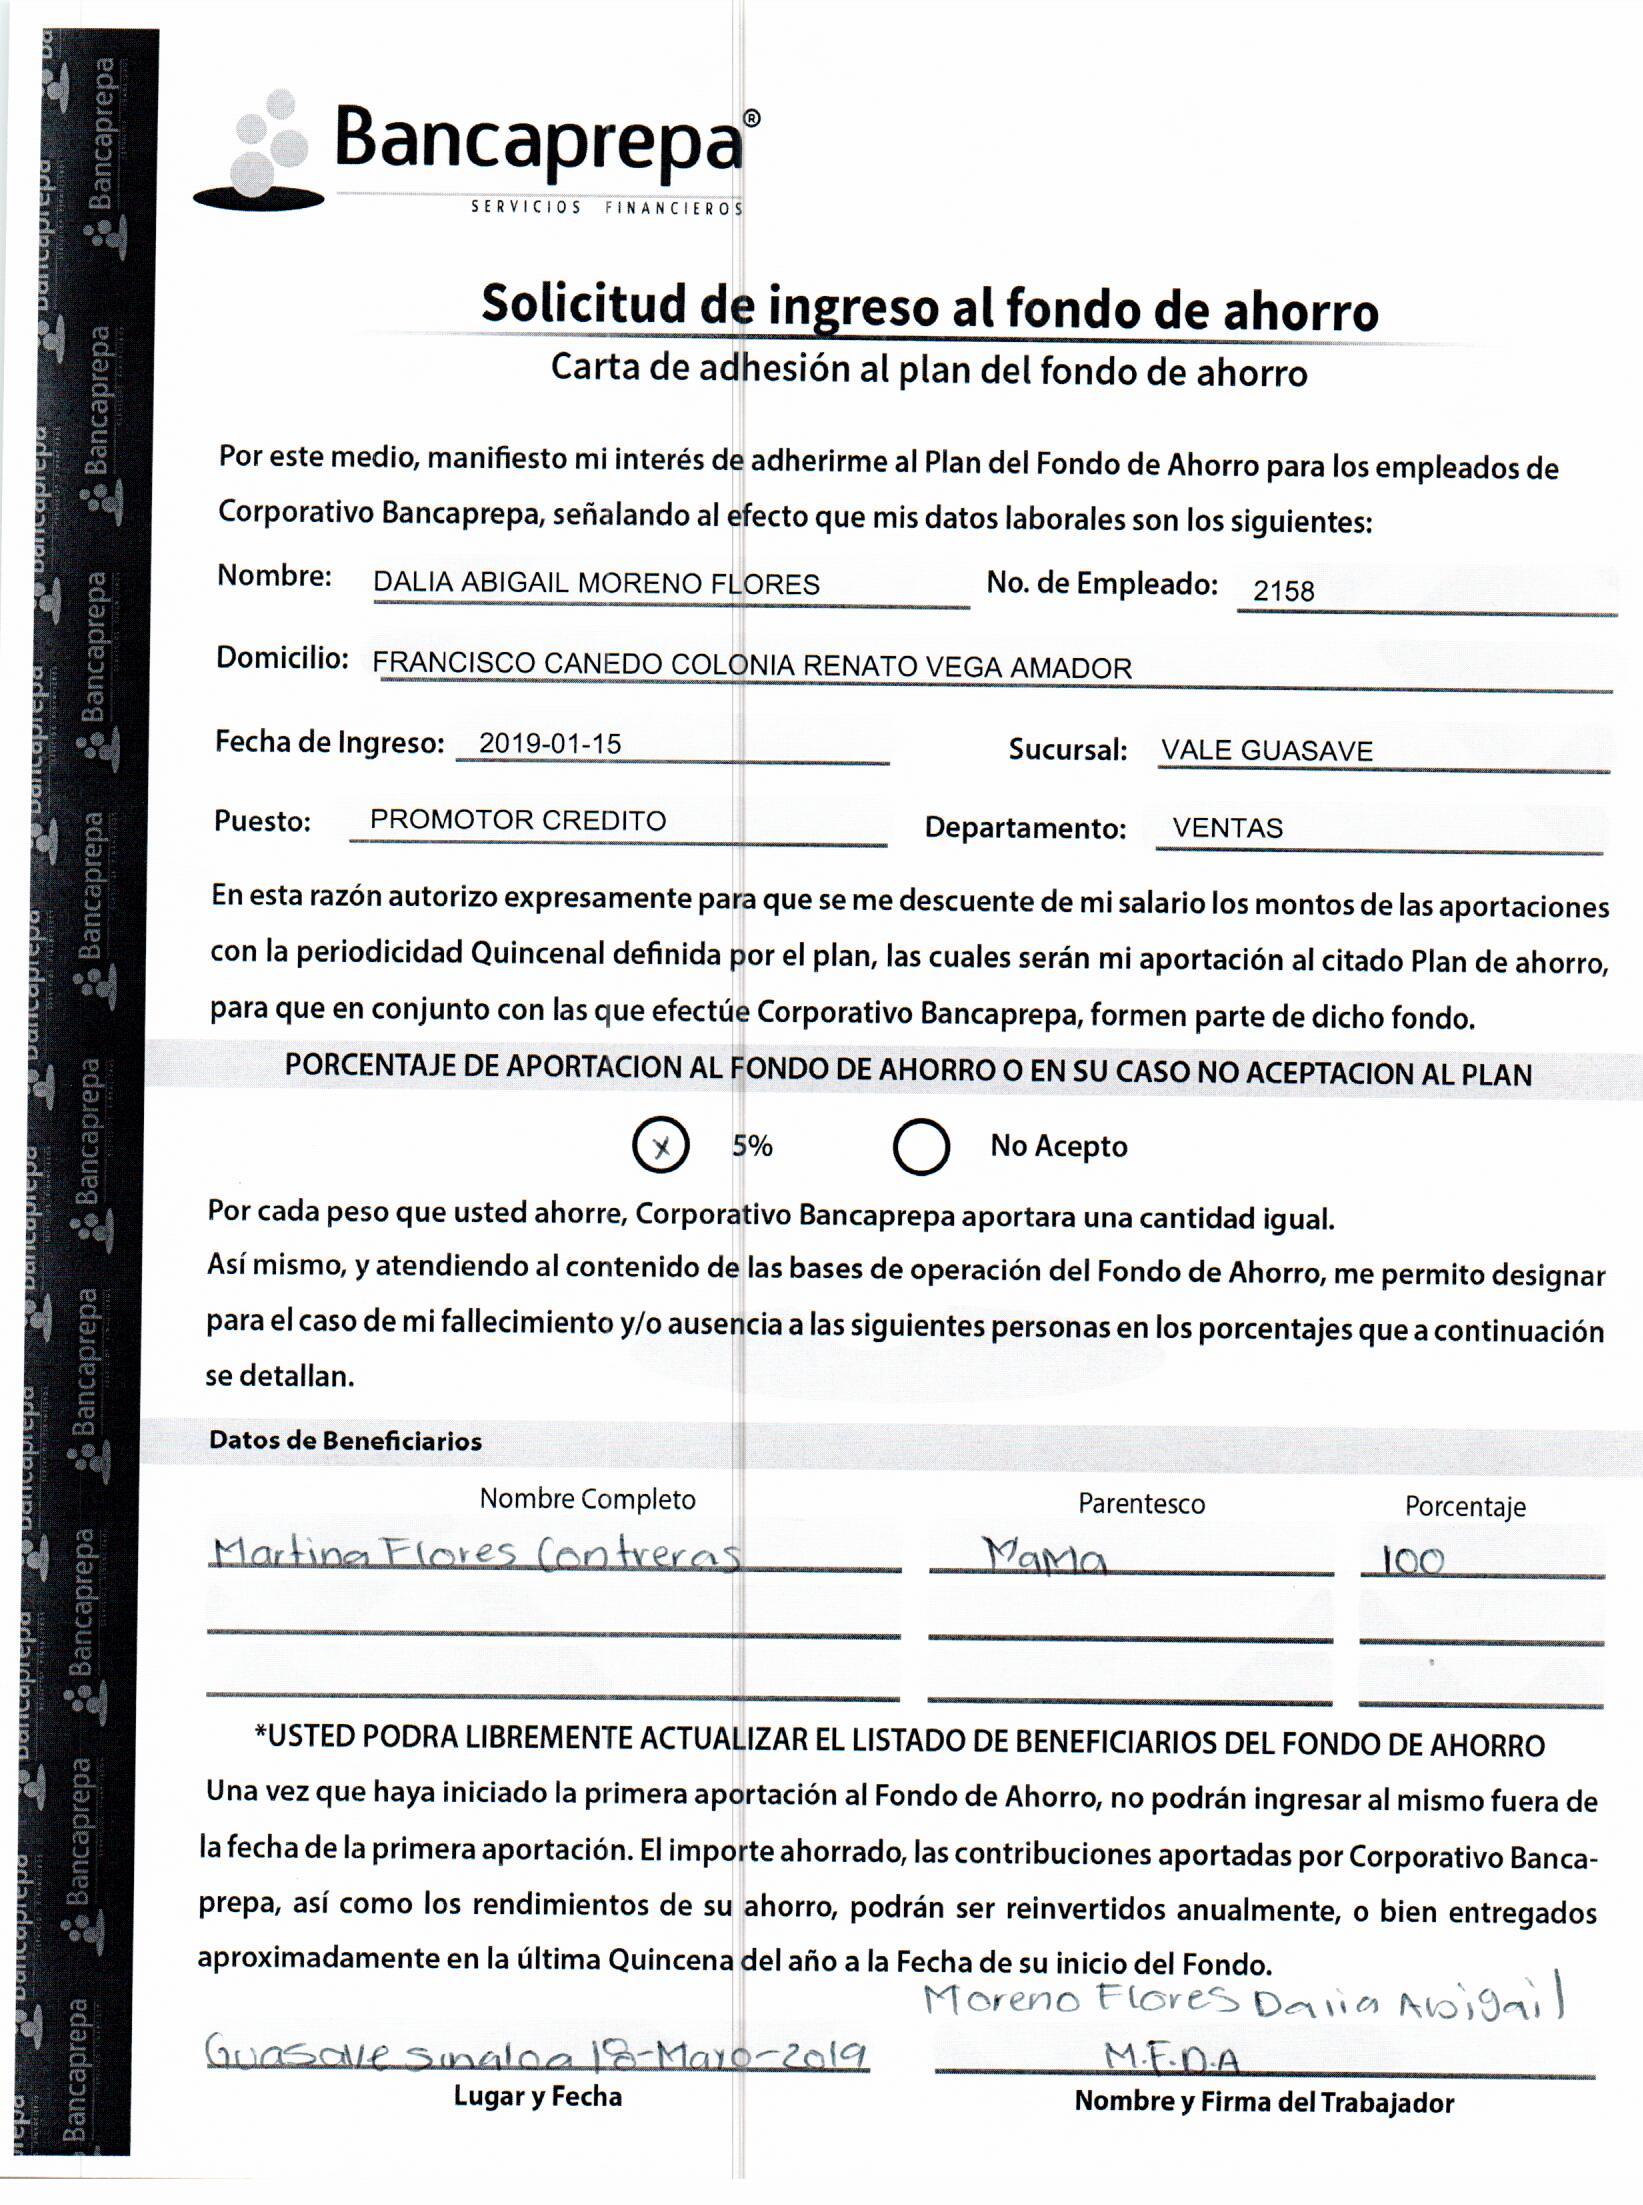 Bancaprepa®
SERVICIOS FINANCIEROS
Solicitud de ingreso al fondo de ahorro
Carta de adhesión al plan del fondo de ahorro
Por este medio, manifiesto mi interés de adherirme al Plan del Fondo de Ahorro para los empleados de
Corporativo Bancaprepa, señalando al efecto que mis datos laborales son los siguientes:
Nombre: DALIA ABIGAIL MORENO FLORES No. de Empleado: 2158
Domicilio: FRANCISCO CANEDO COLONIA RENATO VEGA AMADOR
Fecha de Ingreso: 2019-01-15 Sucursal: VALE GUASAVE
Puesto: PROMOTOR CREDITO Departamento: VENTAS
En esta razón autorizo expresamente para que se me descuente de mi salario los montos de las aportaciones
con la periodicidad Quincenal definida por el plan, las cuales serán mi aportación al citado Plan de ahorro,
para que en conjunto con las que efectúe Corporativo Bancaprepa, formen parte de dicho fondo.
PORCENTAJE DE APORTACION AL FONDO DE AHORRO O EN SU CASO NO ACEPTACION AL PLAN
x 5% No Acepto
Por cada peso que usted ahorre, Corporativo Bancaprepa aportara una cantidad igual.
Así mismo, y atendiendo al contenido de las bases de operación del Fondo de Ahorro, me permito designar
para el caso de mi fallecimiento y/o ausencia a las siguientes personas en los porcentajes que a continuación
se detallan.
Datos de Beneficiarios
Nombre Completo Parentesco Porcentaje
Martina Flores Contreras MaMa 100
*USTED PODRA LIBREMENTE ACTUALIZAR EL LISTADO DE BENEFICIARIOS DEL FONDO DE AHORRO
Una vez que haya iniciado la primera aportación al Fondo de Ahorro, no podrán ingresar al mismo fuera de
la fecha de la primera aportación. El importe ahorrado, las contribuciones aportadas por Corporativo Banca-
prepa, así como los rendimientos de su ahorro, podrán ser reinvertidos anualmente, o bien entregados
aproximadamente en la última Quincena del año a la Fecha de su inicio del Fondo.
Moreno Flores Dalia Abigail
Guasave Sinaloa 18-Mayo-2019 M.F.D.A
Lugar y Fecha Nombre y Firma del Trabajador